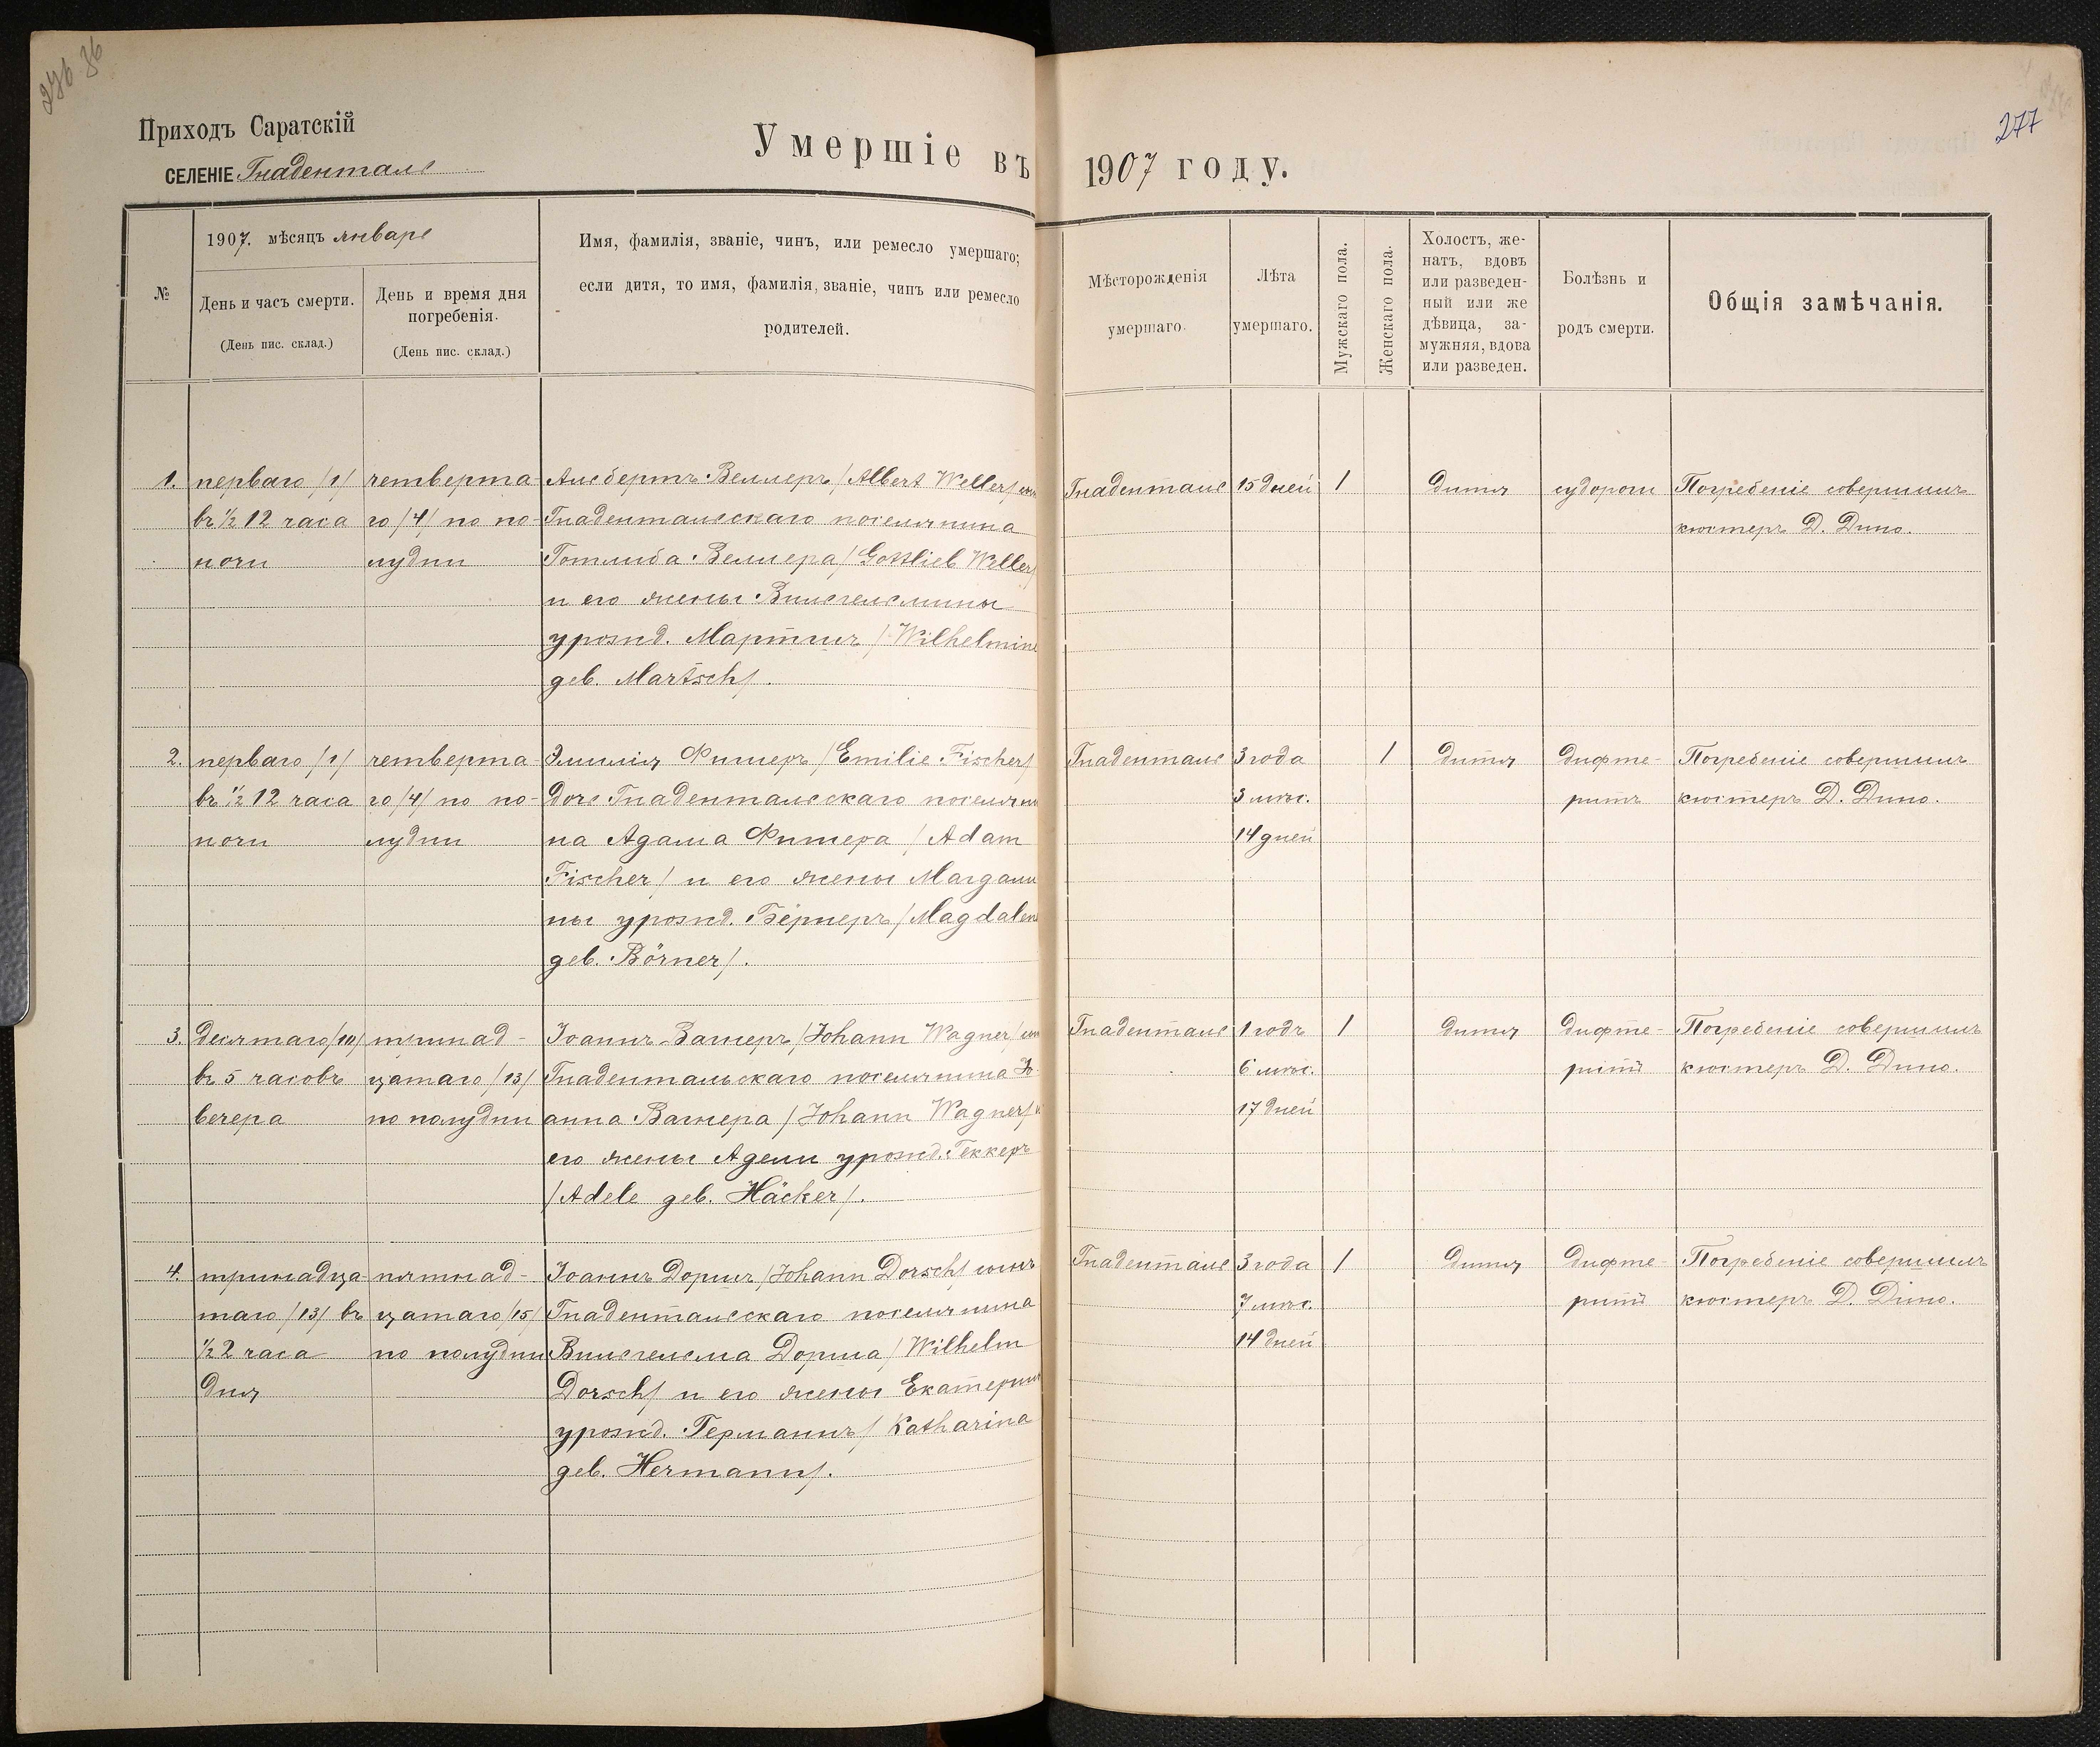 276 36
Приходъ Саратскій
СЕЛЕНІЕ Гнаденталь
Умершіе въ
1907 году.
277
№
1907. мѣсяцъ январь
День и часъ смерти.
(День пис. склад.)
День и время дня
погребенія.
(День пис. склад.)
Имя, фамилія, званіе, чинъ, или ремесло умершаго;
если дитя, то имя, фамилія, званіе, чинъ или ремесло
родителей.
Мѣсторожденія
умершаго.
Лѣта
умершаго.
Мужскаго пола.
Женскаго пола.
Холостъ, же-
натъ, вдовъ
или разведен-
ный или же
дѣвица, за-
мужняя, вдова
или разведен.
Болѣзнь и
родъ смерти.
Общія замѣчанія.
1. перваго /1/ четверта- Альбертъ Веллеръ /Albert Weller/ Гнаденталь 15 дней 1 дитя судороги Погребеніе совершилъ
въ ½ 12 часа го /4/ по по- Гнадентальскаго поселянина кюстеръ Д. Дино.
ночи лудни Готлиба Веллера /Gottlieb Weller/
и его жены Вильгельмины
урожд. Мартшъ /Wilhelmine
geb. Martsch/.
2. перваго /1/ четверта- Эмилія Фишеръ /Emilie Fischer/ Гнаденталь 3 года 1 дитя дифте- Погребеніе совершилъ
въ ½ 12 часа го /4/ по по- дочь Гнадентальскаго поселяни 3 мѣс. ритъ кюстеръ Д. Дино.
ночи лудни на Адама Фишера /Adam 14 дней
Fischer/ и его жены Магдали
ны урожд. Бернеръ /Magdalena
geb. Börner/.
3. десятаго /10/ тринад- Іоаннъ Вагнеръ /Johann Wagner/ Гнаденталь 1 годъ 1 дитя дифте- Погребеніе совершилъ
въ 5 часовъ цатаго /13/ Гнадентальскаго поселянина Іо- 6 мѣс. ритъ кюстеръ Д. Дино.
вечера по полудни анна Вагнера /Johann Wagner/ и 17 дней
его жены Адели урожд. Геккеръ
/Adele geb. Häcker/.
4. тринадца- пятнад- Іоаннъ Доршъ /Johann Dorsch/ сынъ Гнаденталь 3 года 1 дитя дифте- Погребеніе совершилъ
таго /13/ въ цатаго /15/ Гнадентальскаго поселянина 7 мѣс. ритъ кюстеръ Д. Дино.
½ 2 часа по полудни Вильгельма Дорша /Wilhelm 14 дней
дня Dorsch/ и его жены Екатерины
урожд. Германнъ /Katharina
geb. Hermann/.